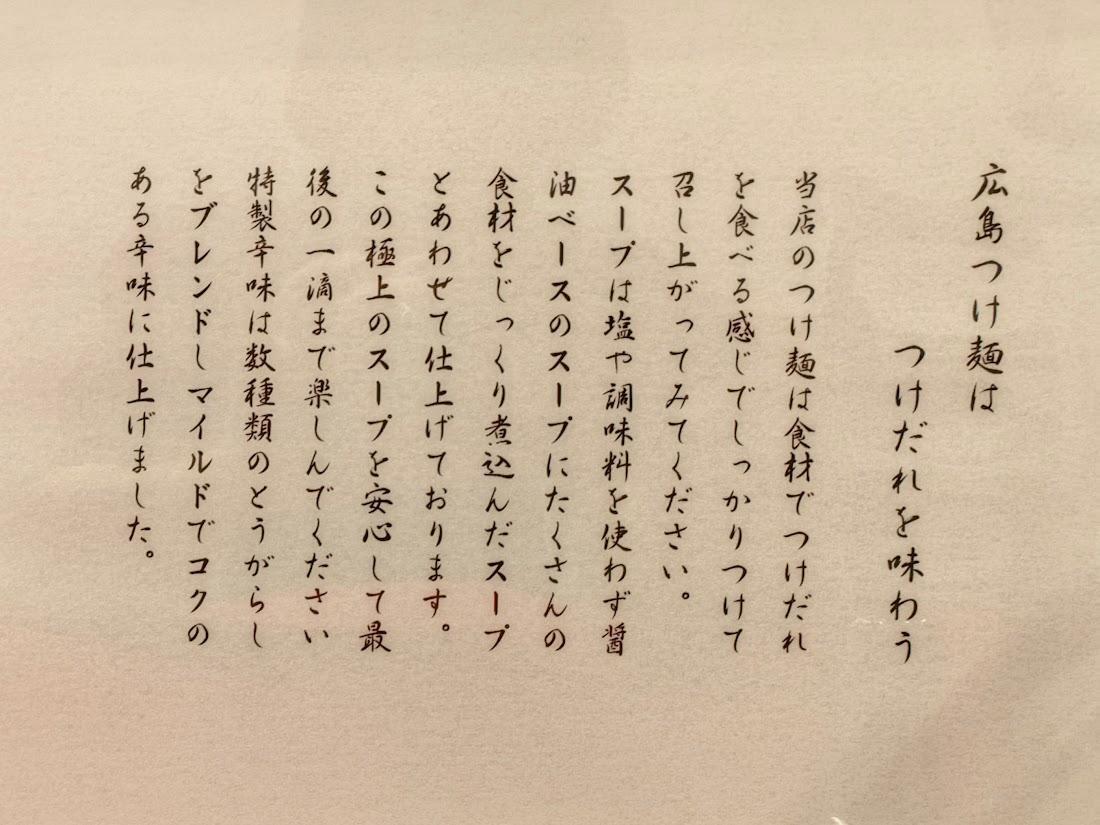 広島つけ麺は
つけだれを味わう
当店のつけ麺は食材でつけだれ
を食べる感じでしっかりつけて
召し上がってみてください。
スープは塩や調味料を使わず醤
油ベースのスープにたくさんの
食材をじっくり煮込んだスープ
とあわせて仕上げております。
この極上のスープを安心して最
後の一滴まで楽しんでください
特製辛味は数種類のとうがらし
をブレンドしマイルドでコクの
ある辛味に仕上げました。